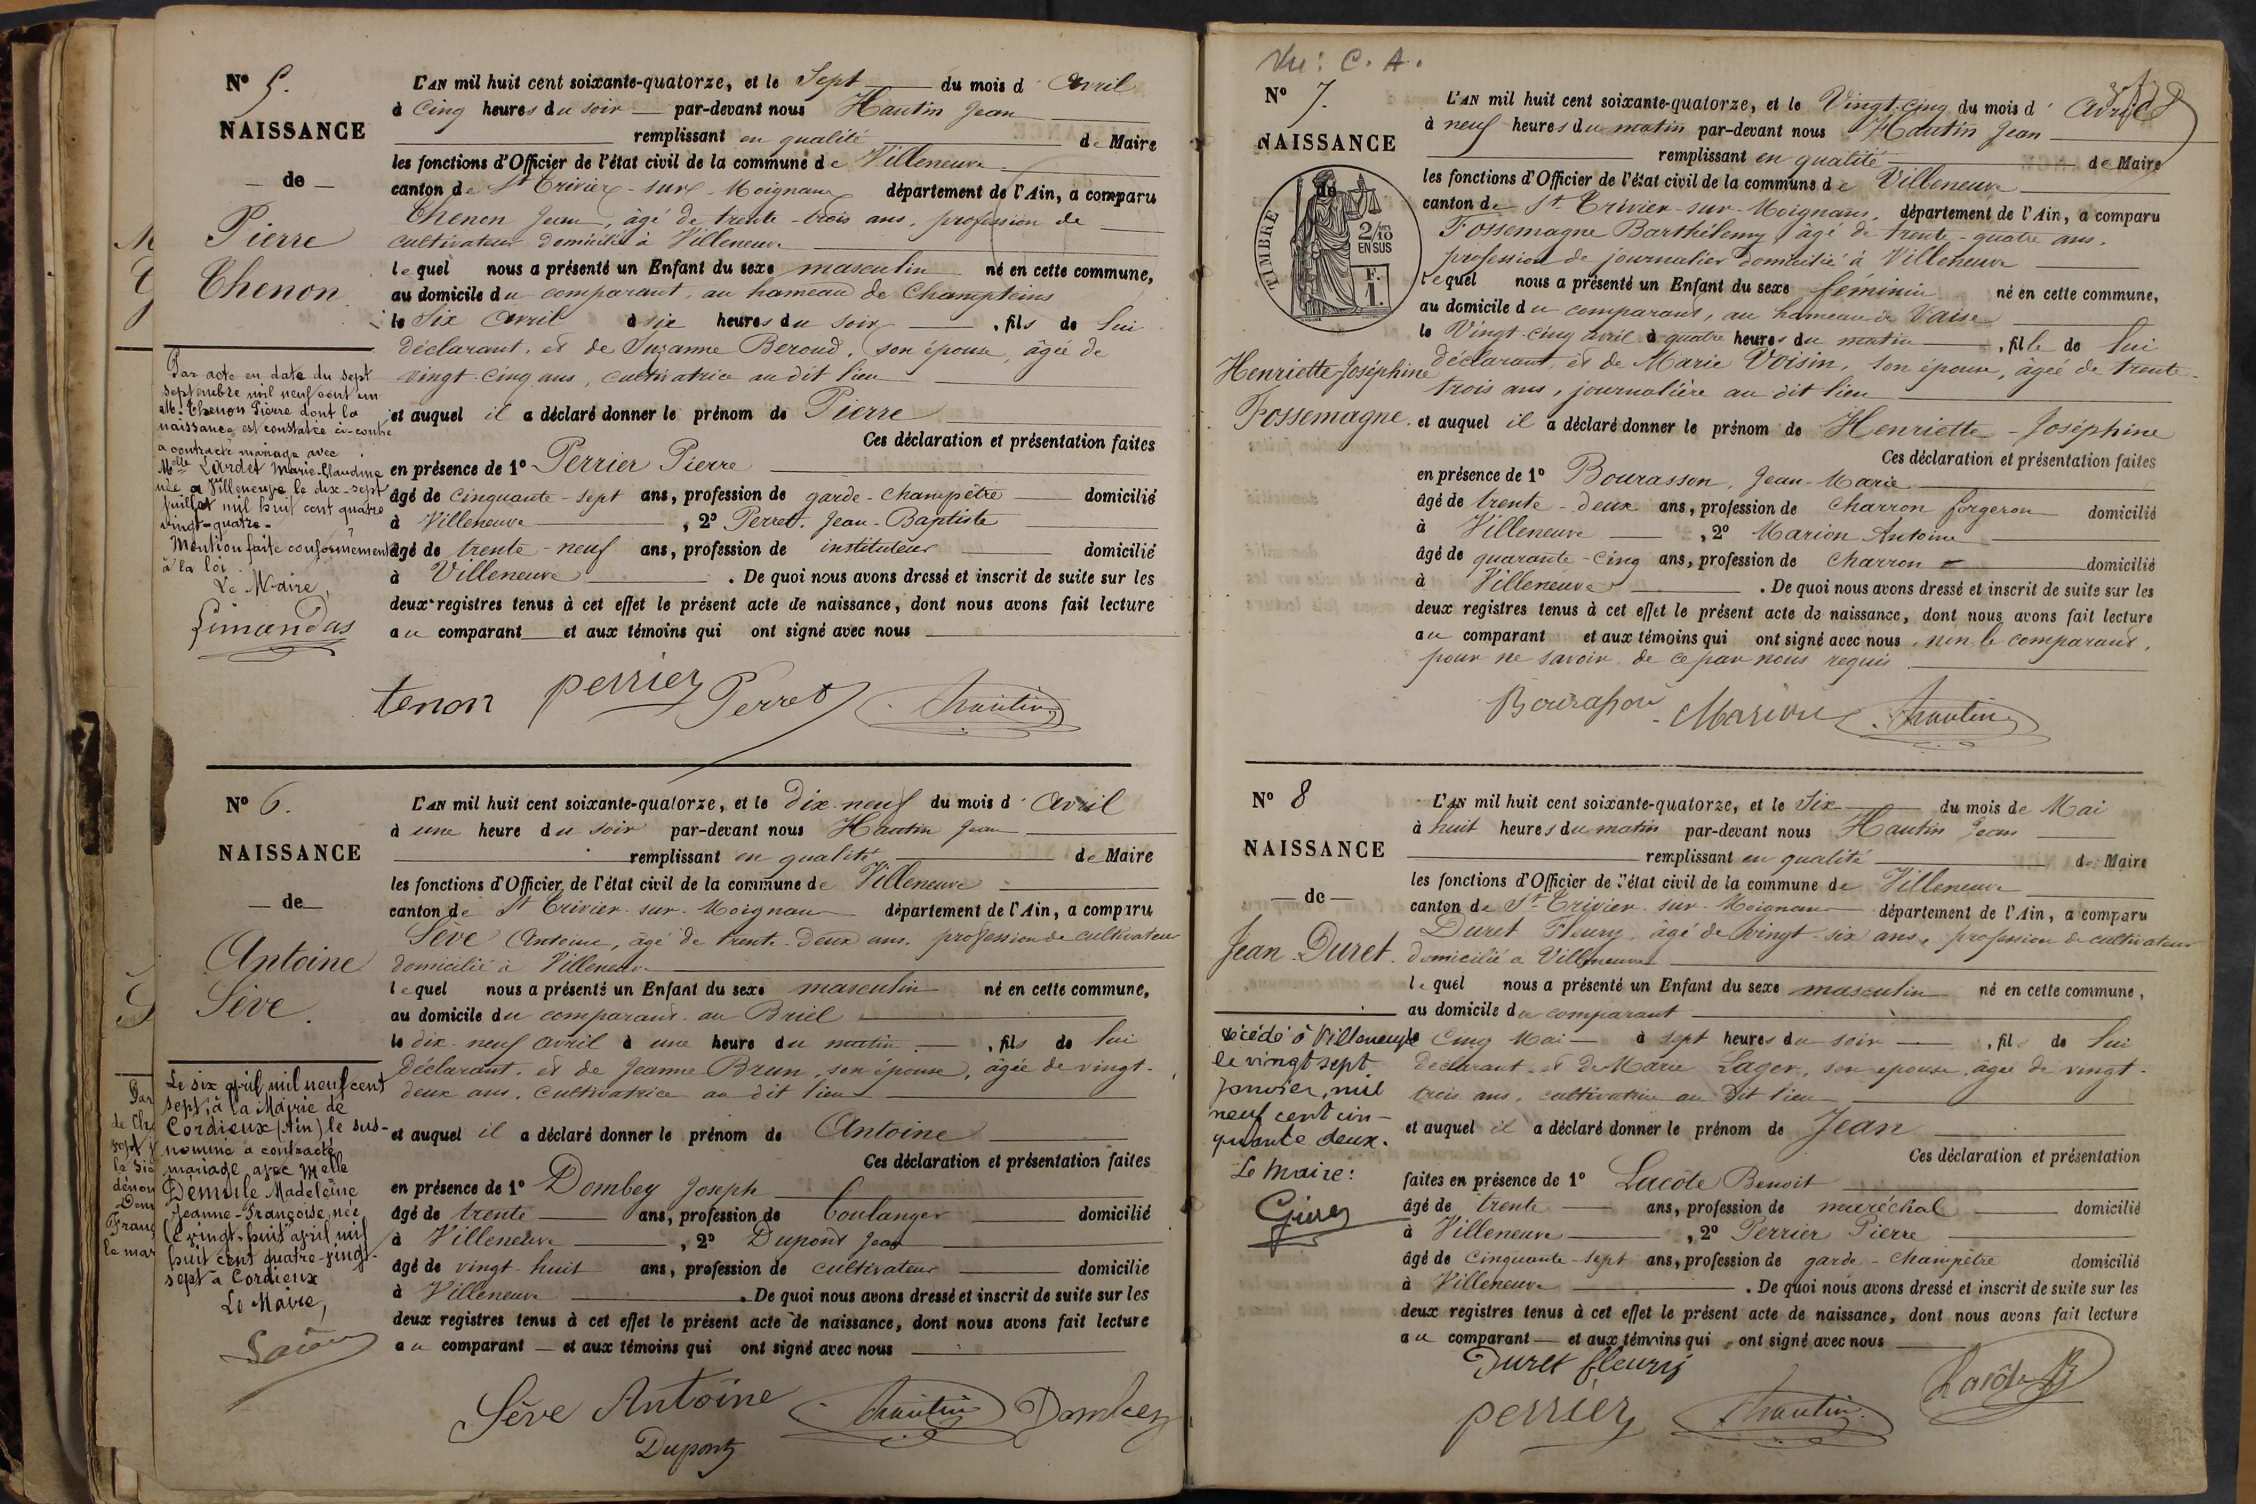 Nº 5.
NAISSANCE
— de —
Pierre
Thenon
Par acte en date du sept
septembre mil neuf cent un
M. Thenon Pierre dont la
naissance est constatée ci-contre
a contracté mariage avec
Melle Lardet Marie-Claudine
née à Villeneuve le dix-sept
juillet mil huit cent quatre
vingt-quatre.
Mention faite conformément
à la loi.
Le Maire,
Limandas
L'AN mil huit cent soixante-quatorze, et le Sept du mois d'Avril
à cinq heures du soir par-devant nous Hautin Jean
remplissant en qualité de Maire
les fonctions d'Officier de l'état civil de la commune de Villeneuve
canton de St Trivier-sur-Moignans département de l'Ain, a comparu
Thenon Jean, âgé de trente-trois ans, profession de
cultivateur domicilié à Villeneuve
lequel nous a présenté un Enfant du sexe masculin né en cette commune,
au domicile du comparant, au hameau de Champteins
le Six Avril à six heures du soir, fils de lui
déclarant, et de Suzanne Beroud, son épouse, âgée de
vingt-cinq ans, cultivatrice au dit lieu
et auquel il a déclaré donner le prénom de Pierre
Ces déclaration et présentation faites
en présence de 1º Perrier Pierre
âgé de cinquante-sept ans, profession de garde-champêtre domicilié
à Villeneuve, 2º Perret, Jean-Baptiste
âgé de trente-neuf ans, profession de instituteur domicilié
à Villeneuve. De quoi nous avons dressé et inscrit de suite sur les
deux registres tenus à cet effet le présent acte de naissance, dont nous avons fait lecture
au comparant et aux témoins qui ont signé avec nous
tenon perrier Perret Hautin
Nº 6.
NAISSANCE
— de —
Antoine
Sève.
Le six avril mil neuf cent
sept, à la Mairie de
Cordieux (Ain) le sus-
nommé a contracté
mariage avec Melle
Madeleine
Jeanne-Françoise, née
le vingt-huit avril mil
huit cent quatre-vingt-
sept à Cordieux
Le Maire,
L'AN mil huit cent soixante-quatorze, et le dix-neuf du mois d'Avril
à une heure du soir par-devant nous Hautin Jean
remplissant en qualité de Maire
les fonctions d'Officier de l'état civil de la commune de Villeneuve
canton de St Trivier-sur-Moignans département de l'Ain, a comparu
Sève Antoine, âgé de trente-deux ans, profession de cultivateur
domicilié à Villeneuve
lequel nous a présenté un Enfant du sexe masculin né en cette commune,
au domicile du comparant au Briel
le dix-neuf avril à une heure du matin, fils de lui
déclarant, et de Jeanne Brun, son épouse, âgée de vingt-
deux ans, cultivatrice au dit lieu
et auquel il a déclaré donner le prénom de Antoine
Ces déclaration et présentation faites
en présence de 1º Dombey Joseph
âgé de trente ans, profession de boulanger domicilié
à Villeneuve, 2º Dupont Jean
âgé de vingt-huit ans, profession de cultivateur domicilié
à Villeneuve. De quoi nous avons dressé et inscrit de suite sur les
deux registres tenus à cet effet le présent acte de naissance, dont nous avons fait lecture
au comparant — et aux témoins qui ont signé avec nous
Sève Antoine Hautin Dombey
Dupont
Vu: C. A.
Nº 7.
NAISSANCE
de
TIMBRE
2/10 EN SUS
F. 1.
Henriette-Joséphine
Fossemagne.
L'AN mil huit cent soixante-quatorze, et le Vingt-cinq du mois d'Avril
à neuf heures du matin par-devant nous Hautin Jean
remplissant en qualité de Maire
les fonctions d'Officier de l'état civil de la commune de Villeneuve
canton de St Trivier-sur-Moignans, département de l'Ain, a comparu
Fossemagne Barthélemy, âgé de trente-quatre ans,
profession de journalier domicilié à Villeneuve
lequel nous a présenté un Enfant du sexe féminin né en cette commune,
au domicile du comparant, au hameau de Vaise
le Vingt-cinq avril à quatre heures du matin, fille de lui
déclarant, et de Marie Voisin, son épouse, âgée de trente-
trois ans, journalière au dit lieu
et auquel il a déclaré donner le prénom de Henriette-Joséphine
Ces déclaration et présentation faites
en présence de 1º Bourasson, Jean-Marie
âgé de trente-deux ans, profession de charron forgeron domicilié
à Villeneuve, 2º Marion Antoine
âgé de quarante-cinq ans, profession de charron domicilié
à Villeneuve. De quoi nous avons dressé et inscrit de suite sur les
deux registres tenus à cet effet le présent acte de naissance, dont nous avons fait lecture
au comparant et aux témoins qui ont signé avec nous, non le comparant,
pour ne savoir de ce par nous requis
Bourasson Marion Hautin
Nº 8
NAISSANCE
— de —
Jean Duret.
décédé à Villeneuve
le vingt sept
janvier, mil
neuf cent cin-
quante deux.
Le Maire:
L'AN mil huit cent soixante-quatorze, et le Six du mois de Mai
à huit heures du matin par-devant nous Hautin Jean
remplissant en qualité de Maire
les fonctions d'Officier de l'état civil de la commune de Villeneuve
canton de St Trivier-sur-Moignans département de l'Ain, a comparu
Duret Fleury, âgé de vingt-six ans, profession de cultivateur
domicilié à Villeneuve
lequel nous a présenté un Enfant du sexe masculin né en cette commune,
au domicile du comparant
Cinq Mai à sept heures du soir, fils de lui
déclarant et de Marie Lager, son épouse, âgée de vingt-
trois ans, cultivatrice au dit lieu
et auquel il a déclaré donner le prénom de Jean
Ces déclaration et présentation
faites en présence de 1º Lacôte Benoit
âgé de trente ans, profession de maréchal domicilié
à Villeneuve, 2º Perrier Pierre
âgé de cinquante-sept ans, profession de garde-champêtre domicilié
à Villeneuve. De quoi nous avons dressé et inscrit de suite sur les
deux registres tenus à cet effet le présent acte de naissance, dont nous avons fait lecture
au comparant — et aux témoins qui ont signé avec nous
Duret fleury Lacôte B
perrier Hautin